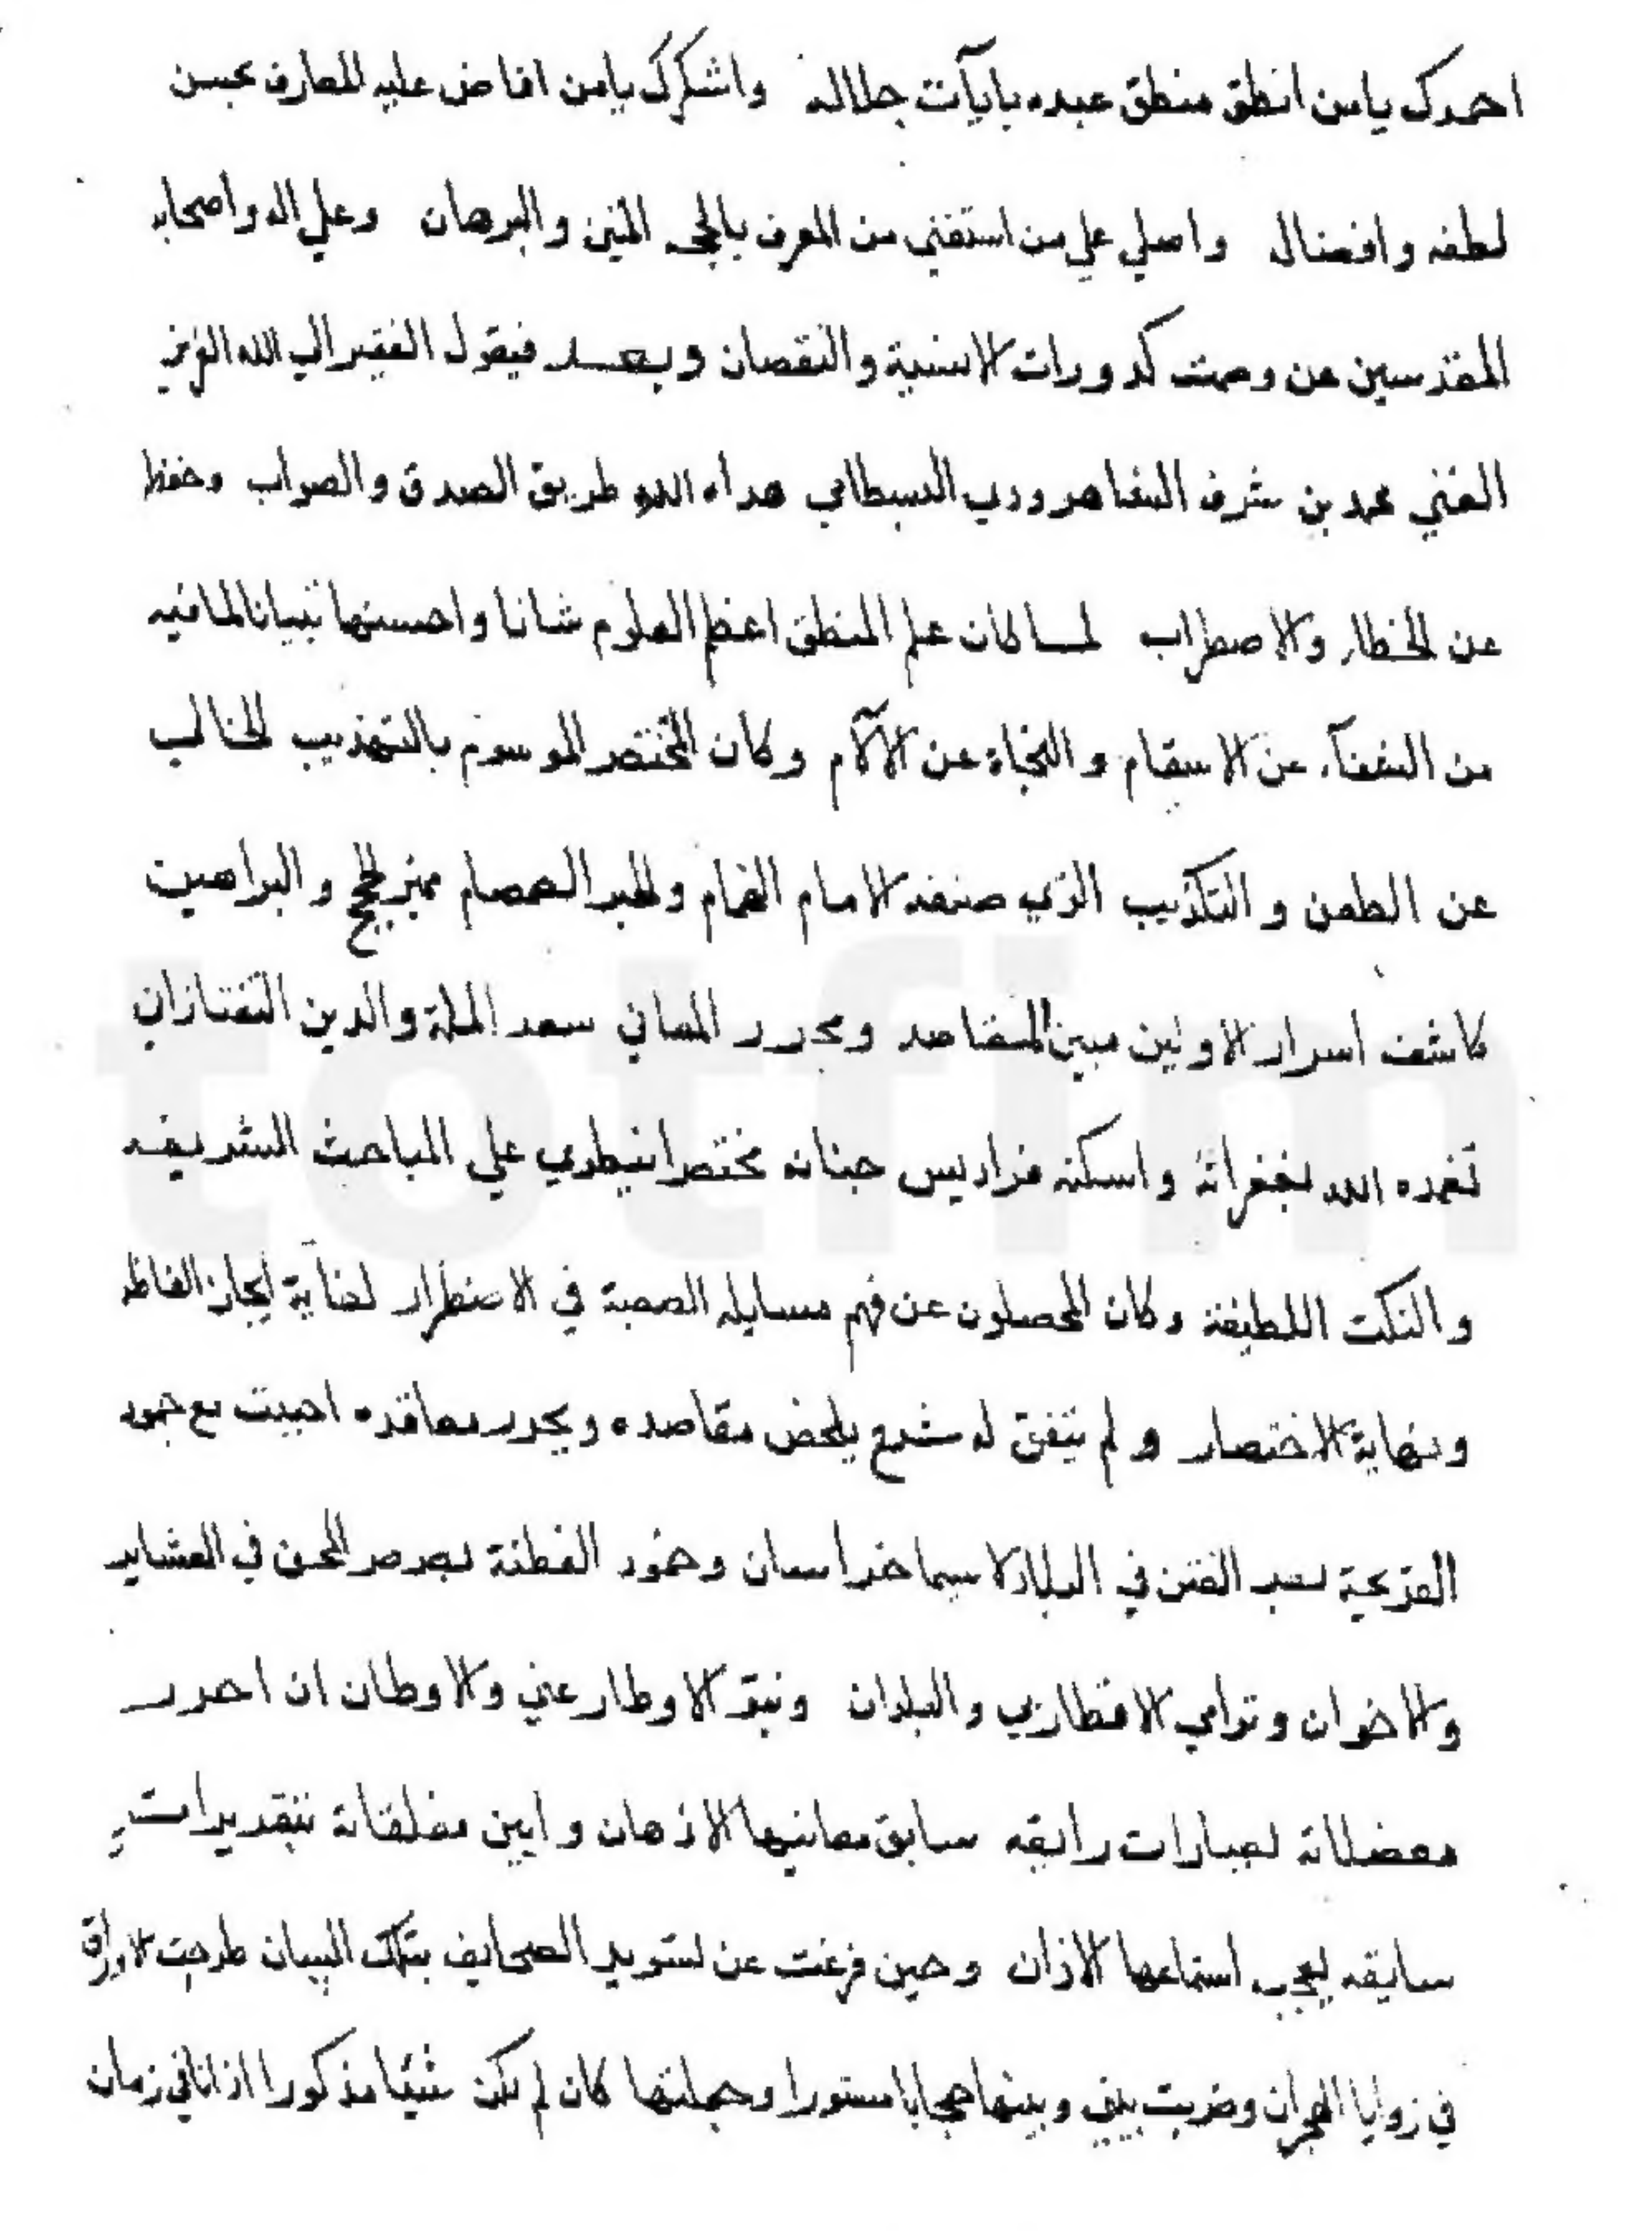 احمدك يا من انطق منطق عبده بايآت جلاله واشكرك يا من افاض عليه المعارف بحسن
لطفه وافضاله واصلي علي من استغني من المعرف بالحجج المتين والبرهان وعلي اله واصحابه
المقدسين عن وصمت كدورات الانسية والنقصان وبعد فيقول الفقير الي الله العزيز
الغني محمد بن شرف الشاهرودي البسطامي هداه الله طريق الصدق والصواب وحفظ
عن الخطاء والاضطراب لما كان علم المنطق اعظم العلوم شانا واحسنها تبيانا لما فيه
من الشفآء عن الاسقام والنجاة عن الآلام وكان المختصر الموسوم بالتهذيب الخالي
عن الطعن والتكذيب الذي صنفه الامام الهمام والحبر الصمصام مميز الحجج والبراهين
كاشف اسرار الاولين مبين المقاصد ومحرر المعاني سعد الملة والدين التفتازاني
تغمده الله بغفرانه واسكنه فراديس جنانه مختصرا ينطوي علي المباحث الشريفه
والنكت اللطيفة وكان المحصلون عن فهم مسايله الصعبة في الاضطرار لغاية ايجاز الفاظه
ونهاية الاختصار ولم يتفق له شرح يلخص مقاصده ويحرر معاقده احببت مع جمود
القريحة لصد الفتن في البلاد لا سيما خراسان وخمود الفطنة بصرصر المحن في العشاير
والاخوان وترامي الاقطار بي والبلدان ونبو الاوطار عني والاوطان ان احرر
معضلاته بعبارات رايقه سابق معانيها الاذهان وابين مغلقاته بتقديرات
سايقه يعجب استماعها الاذان وحين فرغت عن تسويد الصحايف بتلك البيان طرحت الاوراق
في زوايا الهجران وضربت بيني وبينها حجابا مستورا وجعلتها كان لم تكن شيئا مذكورا اذ انا في زمان